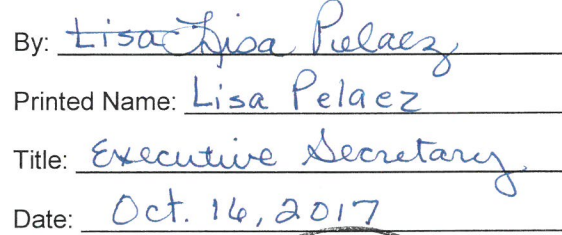 By: Lisa Lisa Pelaez
Printed Name: Lisa Pelaez
Title: Executive Secretary
Date: Oct. 16, 2017